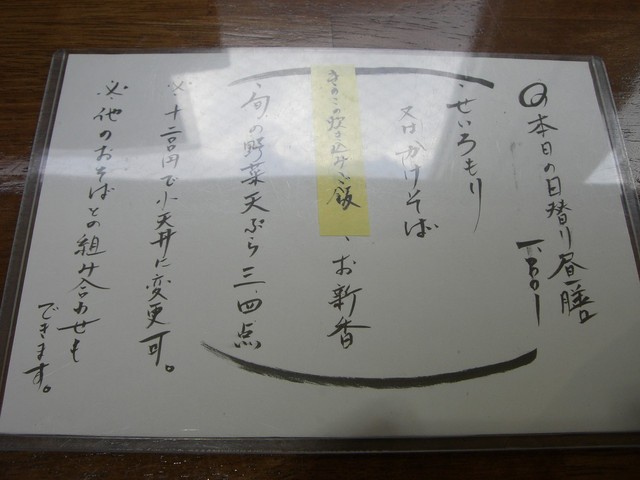 本日の日替り昼膳
一、〇〇〇ー
・せいろもり
又はかけそば
きのこの炊き込みご飯
、お新香
・旬の野菜天ぷら三、四点
※十二〇円で小天丼に変更可。
※他のおそばとの組み合わせも
できます。